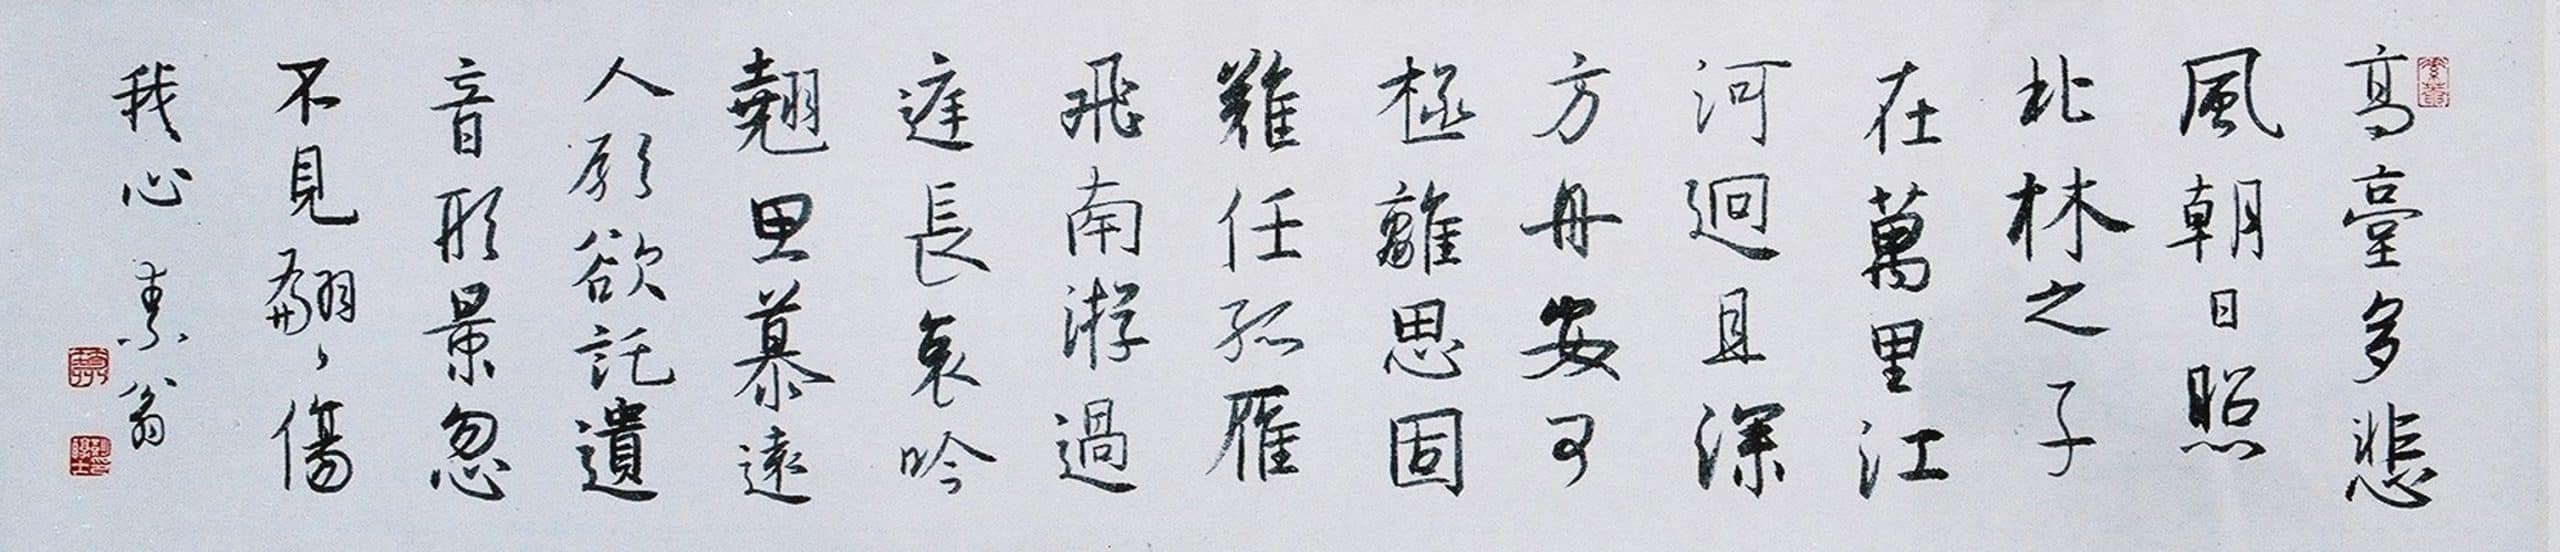 高臺多悲
風朝日照
北林之子
在萬里江
河迥且深
方舟安可
極離思固
難任孤雁
飛南游過
庭長哀吟
翹思慕遠
人願欲託遺
音形景忽
不見翩〻傷
我心 素翁